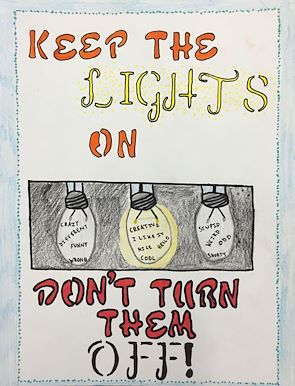 KEEP THE
LIGHTS
ON
CRAZY
DIFFERENT
FUNNY
WRONG
CREATIVE
I LIKE IT
NICE HELLO
COOL
STUPID
WEIRD ODD
SHORTY
DON'T TURN
THEM
OFF!